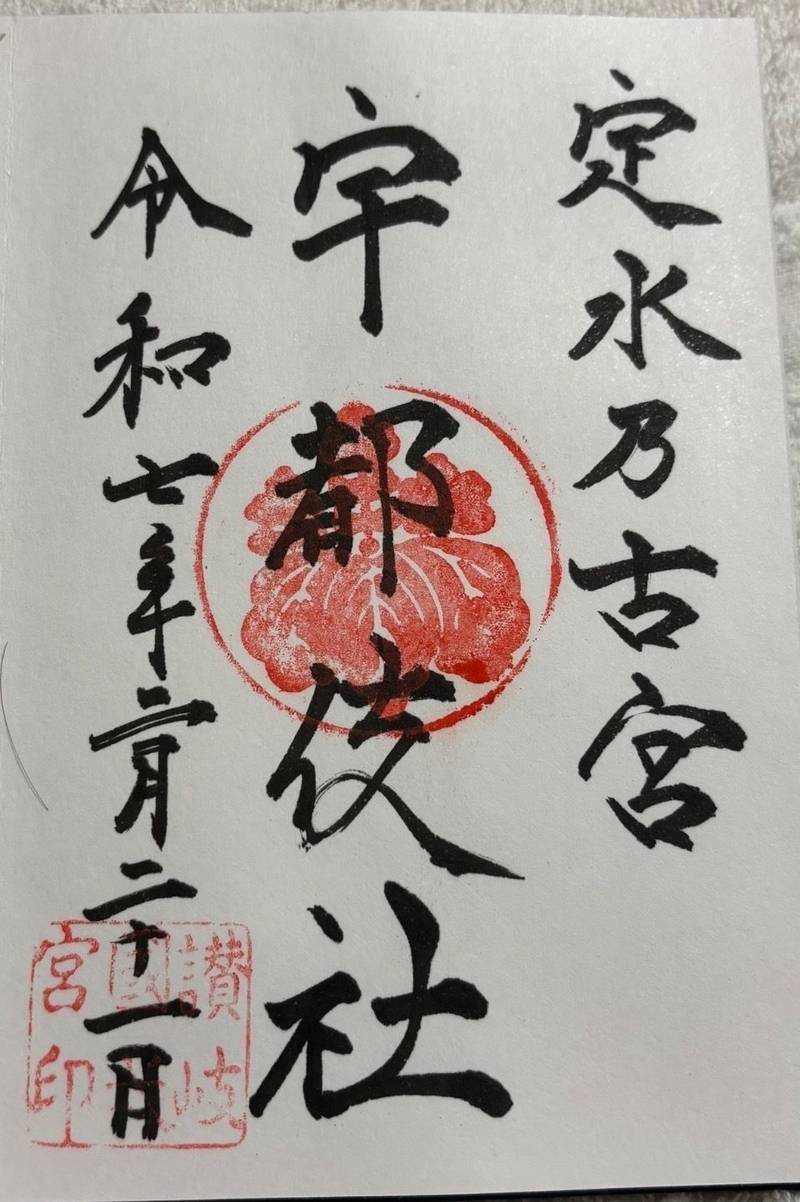 定水乃古宮
宇都伎社
令和七年二月二十一日
讃岐
國
宮印